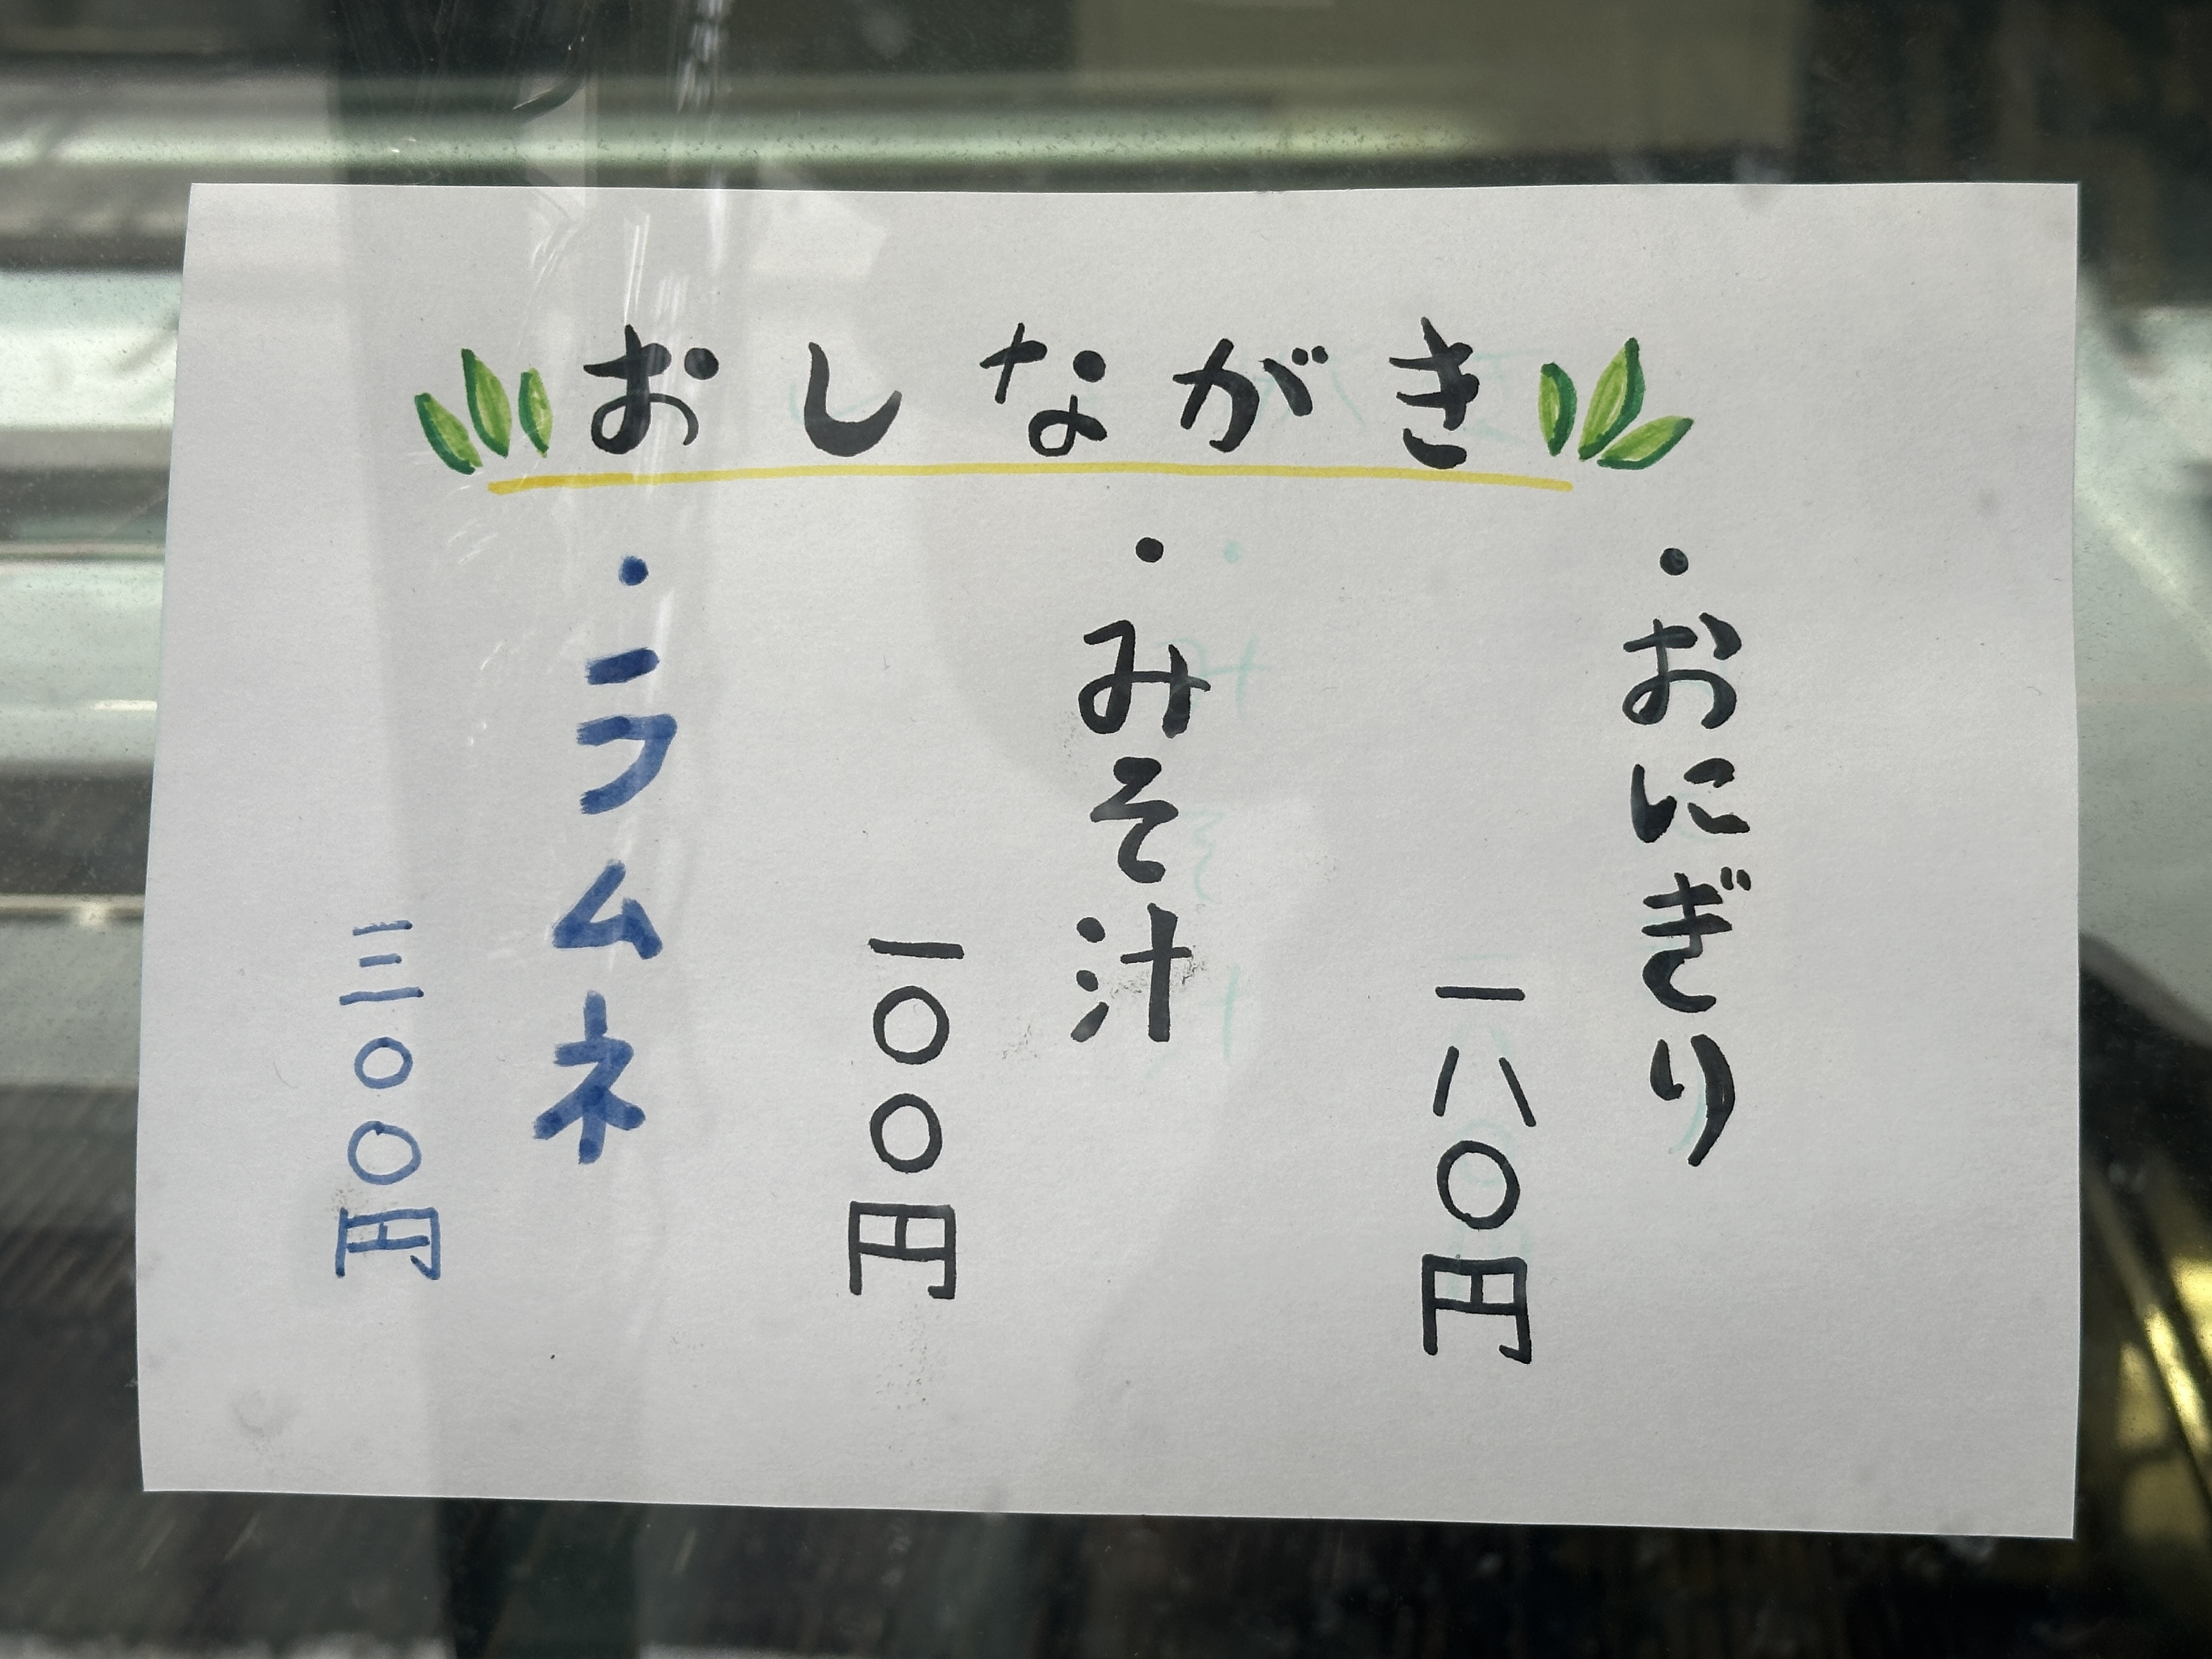 おしながき
・おにぎり
一八〇円
・みそ汁
一〇〇円
・ラムネ
三〇〇円